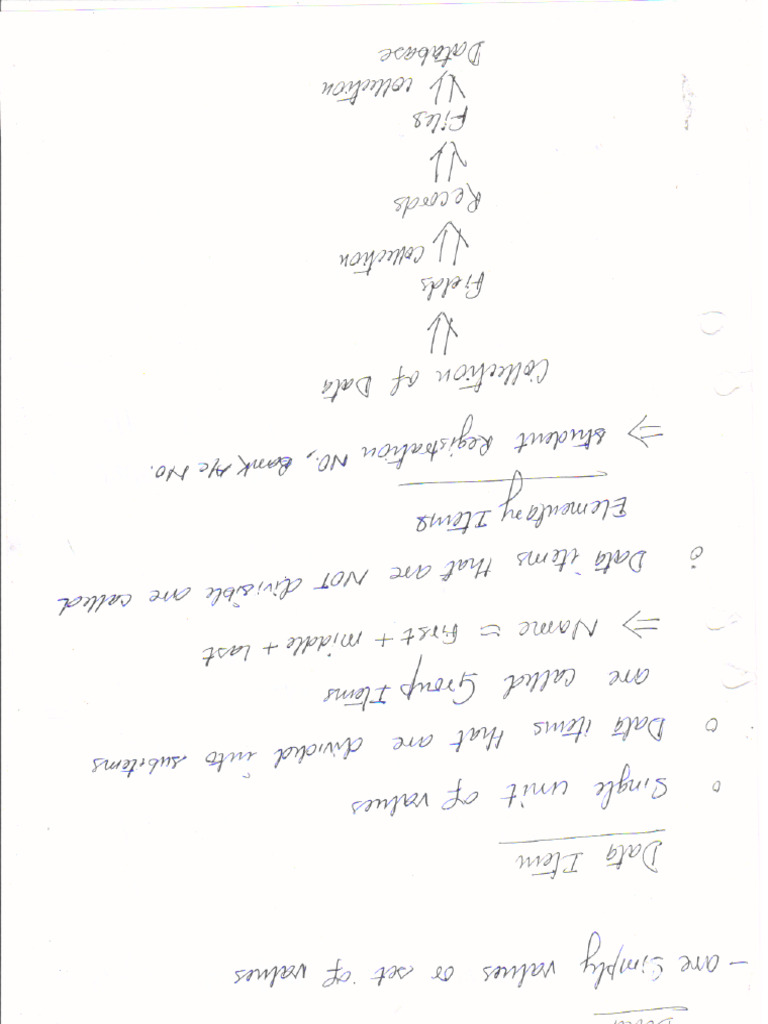 Data
- are simply values or set of values
Data Item
o Single unit of values
o Data items that are divided into subitems
are called Group Items
⇒ Name = First + middle + Last
o Data items that are NOT divisible are called
Elementary Items
⇒ Student Registration NO., Bank A/c No.
Collection of Data
⇓
Fields
⇓ Collection
Records
⇓
Files
⇓ Collection
Database